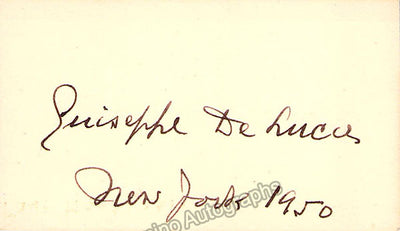 Giuseppe De Luca
New York 1950
ino Autographs